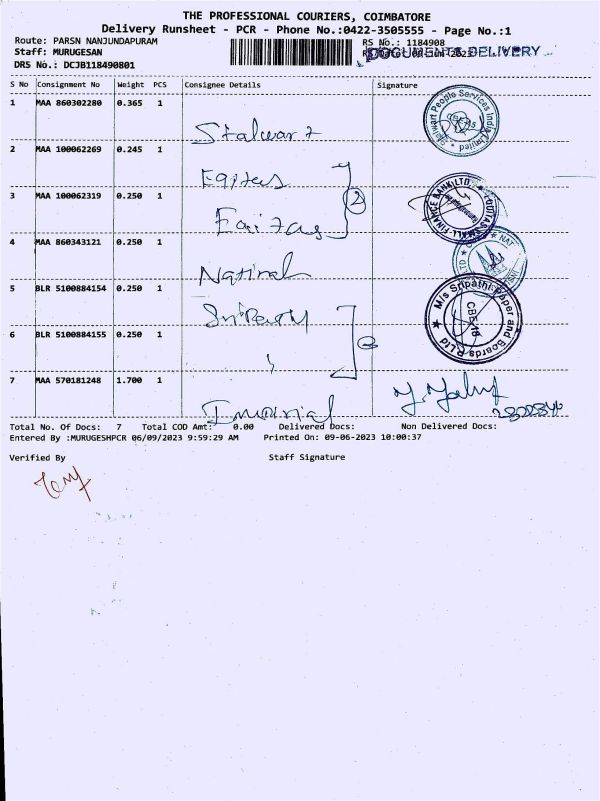 THE PROFESSIONAL COURIERS, COIMBATORE
Delivery Runsheet - PCR - Phone No.:0422-3505555 - Page No.:1
Route: PARSN NANJUNDAPURAM
RS No.: 1184908
Staff: MURUGESAN
DOCUMENTS DELIVERY
DRS No.: DCJB118490801
S No Consignment No Weight PCS Consignee Details Signature
1 MAA 860302280 0.365 1
Stalwart
2 MAA 100062269 0.245 1
Eqitas
3 MAA 100062319 0.250 1
2
4 MAA 860343121 0.250 1
National
5 BLR 5100884154 0.250 1
Sripathy
6 BLR 5100884155 0.250 1
7 MAA 570181248 1.700 1
Imperial
Stalwart People Services India Limited
EQUITAS SMALL FINANCE BANK LTD.
M/s Sripathi Paper and Boards P Ltd
CBE-18
Total No. Of Docs: 7 Total COD Amt: 0.00 Delivered Docs: Non Delivered Docs:
Entered By :MURUGESHPCR 06/09/2023 9:59:29 AM Printed On: 09-06-2023 10:00:37
Verified By Staff Signature